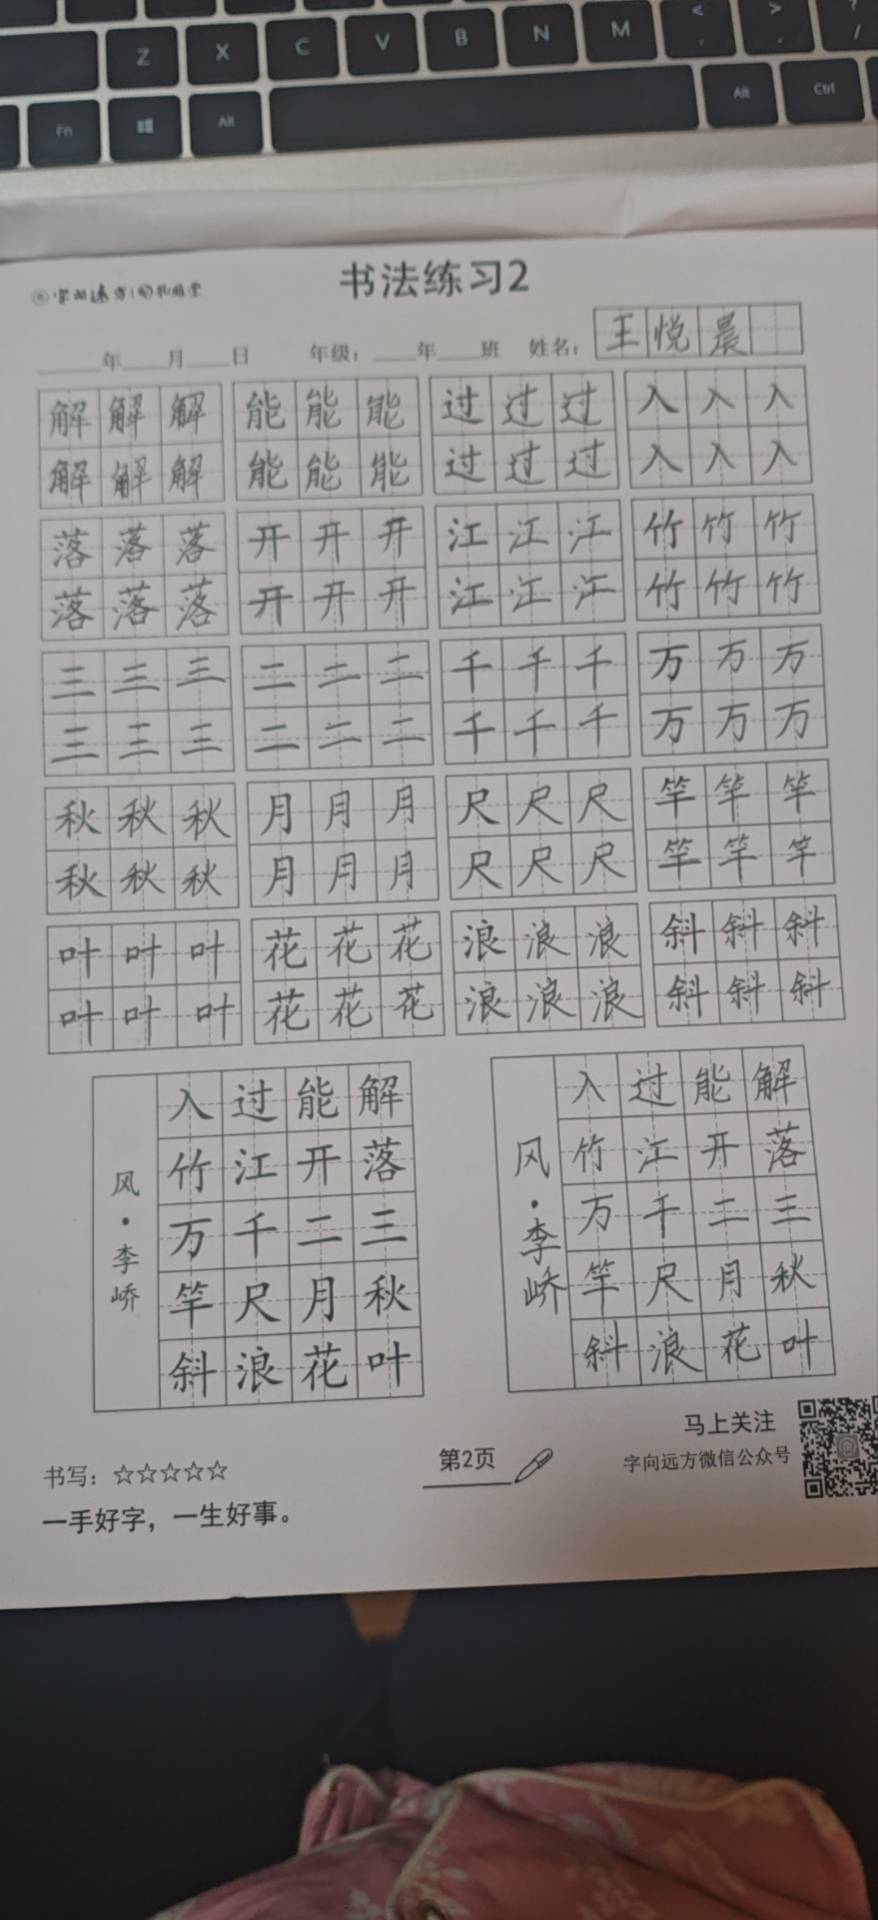 Z X C V B N M < , > . ? /
Fn Alt Alt Ctrl
书法练习2
年 月 日 年级： 年 班 姓名： 王悦晨
解 解 解 能 能 能 过 过 过 入 入 入
解 解 解 能 能 能 过 过 过 入 入 入
落 落 落 开 开 开 江 江 江 竹 竹 竹
落 落 落 开 开 开 江 江 江 竹 竹 竹
三 三 三 二 二 二 千 千 千 万 万 万
三 三 三 二 二 二 千 千 千 万 万 万
秋 秋 秋 月 月 月 尺 尺 尺 竿 竿 竿
秋 秋 秋 月 月 月 尺 尺 尺 竿 竿 竿
叶 叶 叶 花 花 花 浪 浪 浪 斜 斜 斜
叶 叶 叶 花 花 花 浪 浪 浪 斜 斜 斜
解落三秋叶
能开二月花
过江千尺浪
入竹万竿斜
风·李峤
解落三秋叶
能开二月花
过江千尺浪
入竹万竿斜
风·李峤
书写：☆☆☆☆☆
一手好字，一生好事。
第2页
马上关注
字向远方微信公众号